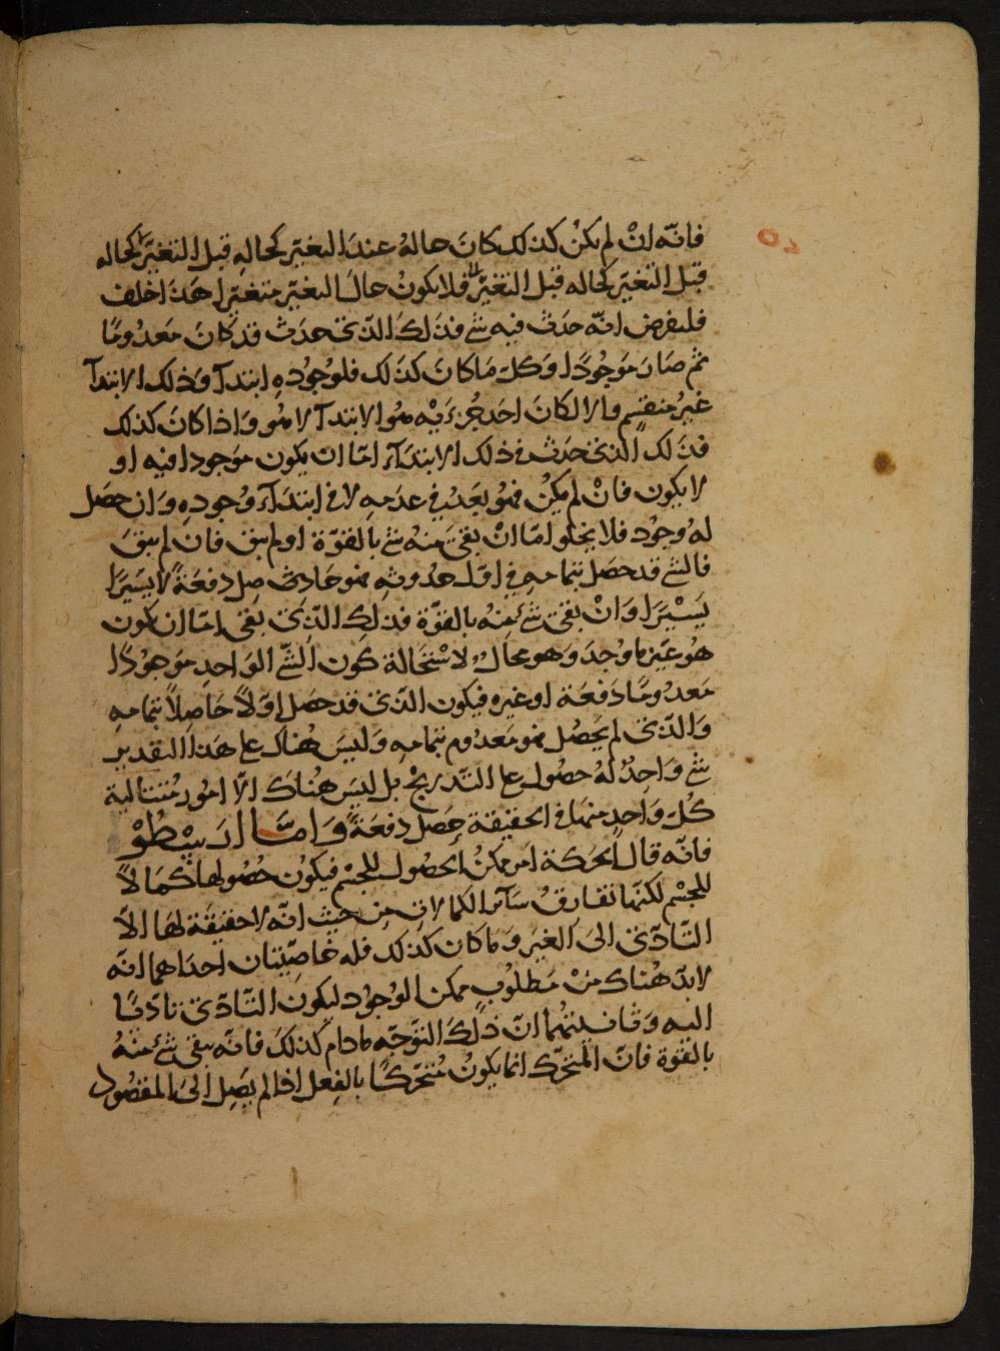 فانّه ان لم يكن كذلك كان حاله عند التغيّر كحاله قبل التغيّر كحاله
قبل التغيّر كحاله قبل التغيّر فلا يكون حال التغيّر متغيّرا هذا خلف
فليفرض انّه حدث فيه شئ فذلك الذى حدث قد كان معدوما
ثم صار موجودا وكل ما كان كذلك فلوجوده ابتدآ وذلك الابتدآ
غير منقسم والا لكان احد جزءيه هو الابتدآ لا هو واذا كان كذلك
فذلك الذى حدث فى ذلك الابتدآء امّا ان يكون موجودا فيه او
لا يكون فان لم يكن فهو بعد فى عدمه لا فى ابتدآء وجوده وان حصل
له وجود فلا يخلوا امّا ان بقى منه شئ بالقوّة او لم يبق فان لم يبق
فالشئ قد حصل بتمامه فى اول حدوثه فهو حادث دفعة لا يسيرا
يسيرا وان بقى شئ منه بالقوّة فذلك الذى بقى امّا ان يكون
هو عين ما وجد وهو محال لاستحالة كون الشئ الواحد موجودا
معدوما دفعة او غيره فيكون الذى قد حصل اوّلا حاصلا بتمامه
والذى لم يحصل فهو معدوم بتمامه وليس هناك على هذا التقدير
شئ واحد له حصول على التدريج بل ليس هناك الا امور متتالية
كل واحد منها فى الحقيقة حصل دفعة وامّا ارسطو
فانّه قال الحركة امر ممكن الحصول للجسم فيكون حصولها كمالا
للجسم لكنها تفارق سآئر الكمالات من حيث انّه لا حقيقة لها الا
التادّى الى الغير وما كان كذلك فله خاصيّتان احداهما انّه
لا بدّ هناك من مطلوب ممكن الوجود ليكون التادّى تادّيا
اليه وثانيتهما انّ ذلك التوجّه ما دام كذلك فانّه يبقى شئ منه
بالقوة فانّ المتحرّك انما يكون متحرّكا بالفعل اذا لم يصل الى المقصود